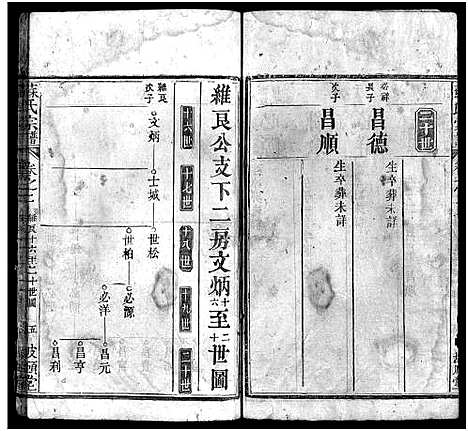 二十世
必祥
長子
昌德
生卒葬未詳
次子
昌順
生卒葬未詳
維艮公支下二房文炳十六至二十世圖
十六世
十七世
十八世
十九世
二十世
維艮
次子
文炳
士城
世松
世柏
必源
必洋
昌元
昌亨
昌利
氏宗譜
卷之二
維艮十六至二十世圖
五